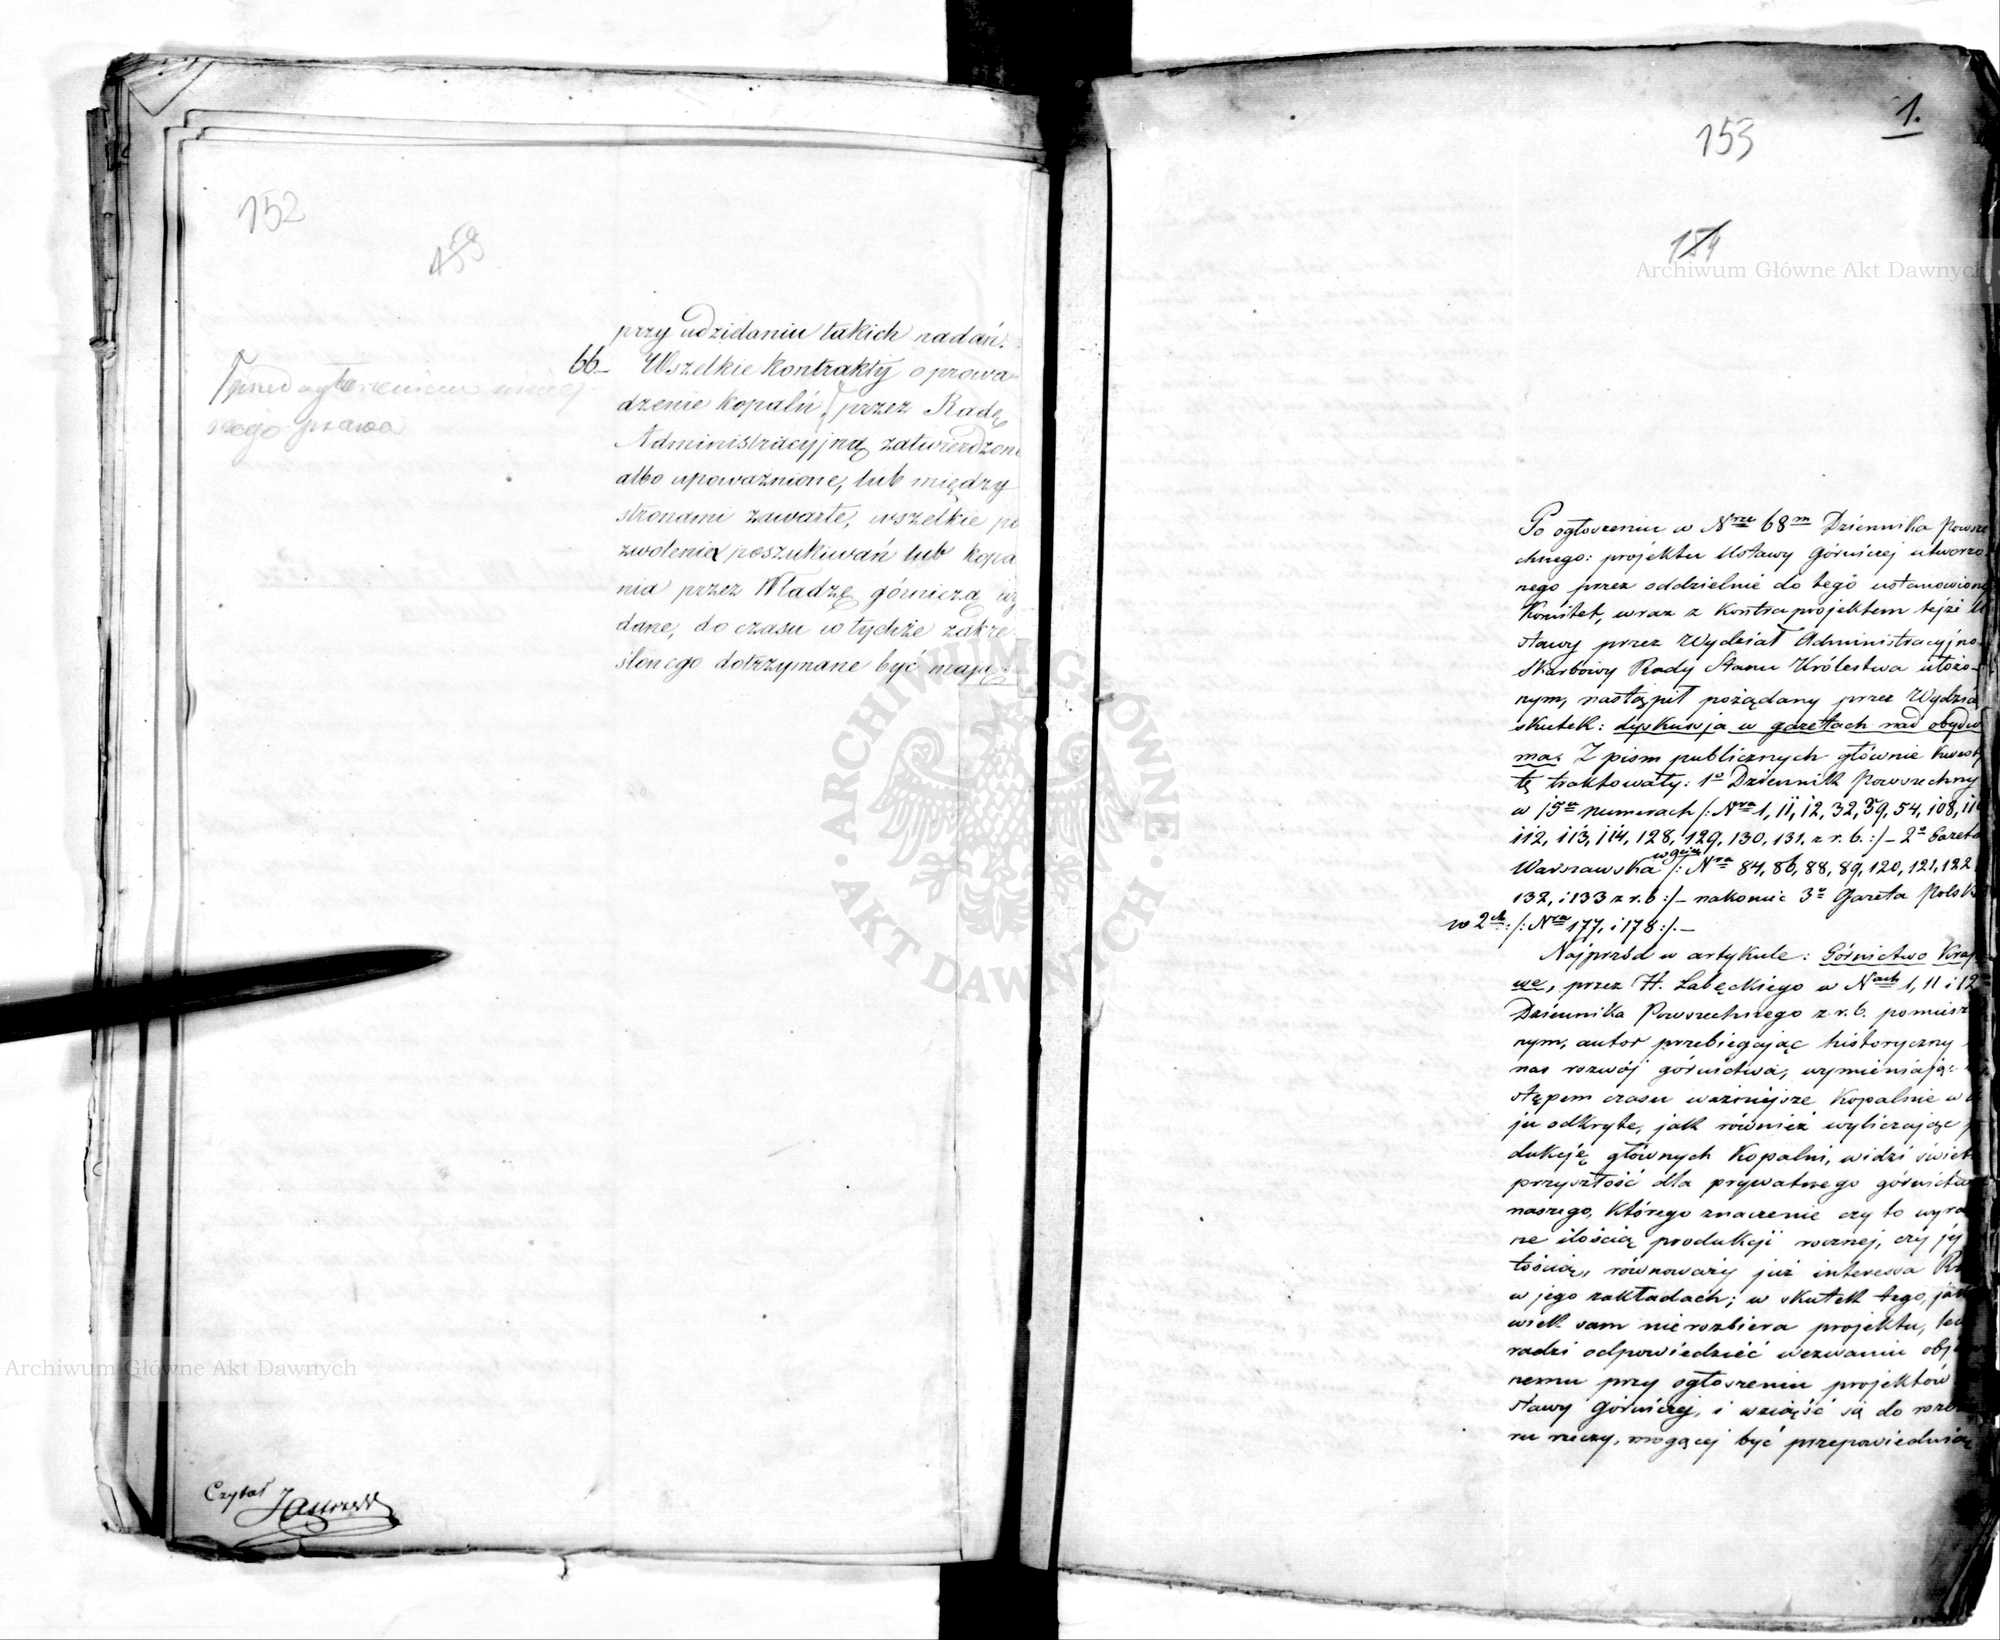 152
159
przed ogłoszeniem niniej
szego prawa
przy udzielaniu takich nadań.
66_ Wszelkie kontrakty o prowa
dzenie kopalń, przez Radę
Administracyjną zatwierdzone
albo upoważnione, lub między
stronami zawarte, wszelkie po
zwolenia poszukiwań lub kopa
nia przez Władzę górniczą wy
dane, do czasu w tychże zakre
ślonego dotrzymane być mają.
Czytał
153
1.
154
Po ogłoszeniu w Nrze 68m Dziennika Powsze
chnego: projektu Ustawy Górniczej utworzo
nego przez oddzielnie do tego ustanowiony
Komitet, wraz z kontraprojektem tejże U
stawy przez Wydział Administracyjno-
Skarbowy Rady Stanu Królestwa ułożo-
nym, nastąpił pożądany przez Wydział
skutek: dyskusja w gazetach nad obydw
ma. Z pism publicznych głównie kwest
tę traktowały: 1o Dziennik Powszechny
w numerach /: Nra 1, 11, 12, 32, 39, 54, 108, 11
112, 113, 114, 128, 129, 130, 131, z r. b. :/ _ 2o Gazeta
Warszawska /: Nra 84, 86, 88, 89, 120, 121, 122
132, i 133 z r. b :/ _ nakoniec 3o Gazeta Polska
w 2ch :/: Nra 177, i 178 :/. _
Najprzód w artykule: Górnictwo Krajo
we, przez H. Łabęckiego w Nach 1, 11 i 12
Dziennika Powszechnego z r. b. pomieszczo
nym, autor przebiegając historyczny
nas rozwój górnictwa, wymieniając
stępem czasu ważniejsze kopalnie w
ju odkryte, jak również wyliczając p
dukcję głównych kopalni, widzi świet
przyszłość dla prywatnego górnictwa
naszego, którego znaczenie czy to wyra
ne ilością produkcji rocznej, czy jej
tością, równoważy już interessa
w jego zakładach; w skutek tego, jak
wiek sam nie rozbiera projektu, lecz
radzi odpowiedzieć wezwaniu obj
nemu przy ogłoszeniu projektów
stawy Górniczej, i wziąść się do rozbio
ru rzeczy, mogącej być przepowiednią
Archiwum Główne Akt Dawnych
Archiwum Główne Akt Dawnych
ARCHIWUM GŁÓWNE AKT DAWNYCH